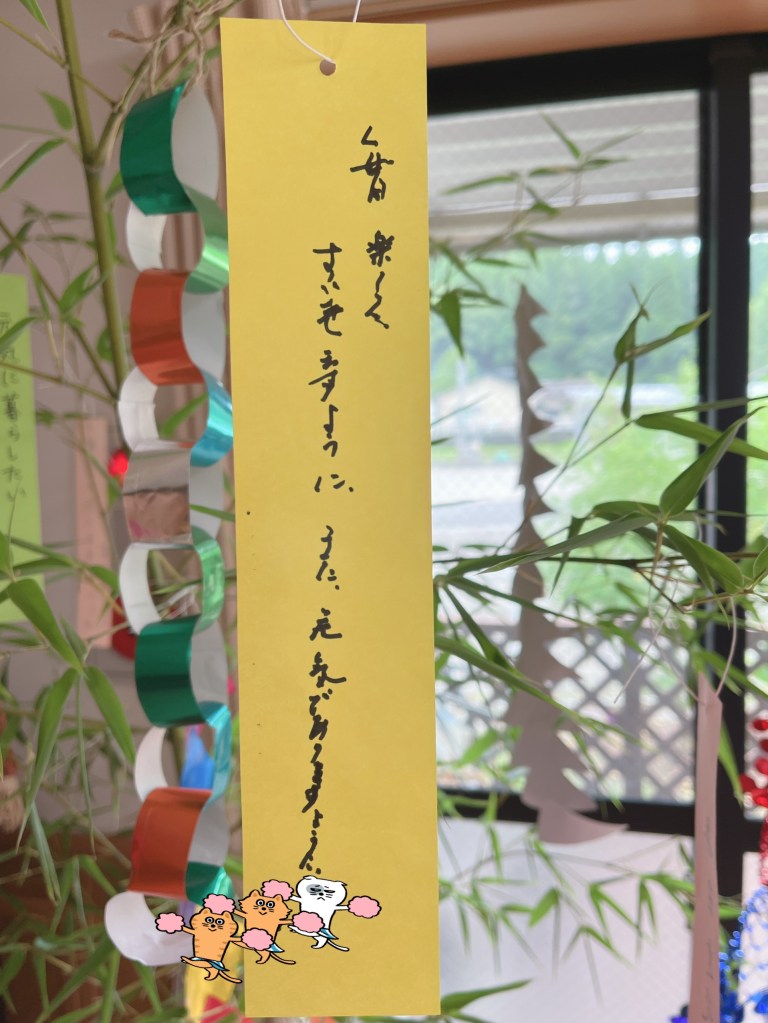 毎日 楽しく
すごせ ますように、 また、元気でありますように、
元気に暮らしたい